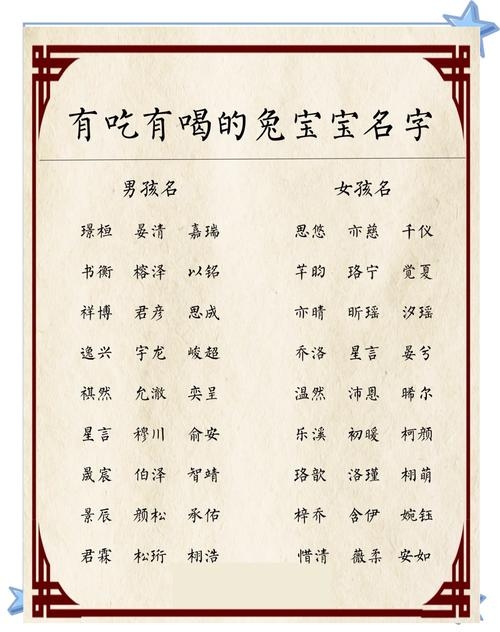 有吃有喝的兔宝宝名字
男孩名 女孩名
璟桓 晏清 嘉瑞 思悠 亦慈 千仪
书衡 榕泽 以铭 芊昀 珞宁 觉夏
祥博 君彦 思成 亦晴 昕瑶 汐瑶
逸兴 宇龙 峻超 乔洛 星言 晏兮
祺然 允澈 奕呈 温然 沛恩 晞尔
星言 穆川 俞安 乐溪 初暖 柯颜
晟宸 伯泽 智靖 珞歆 洛瑾 栩萌
景辰 颜松 承佑 梓乔 含伊 婉钰
君霖 松珩 栩浩 惜清 薇柔 安如